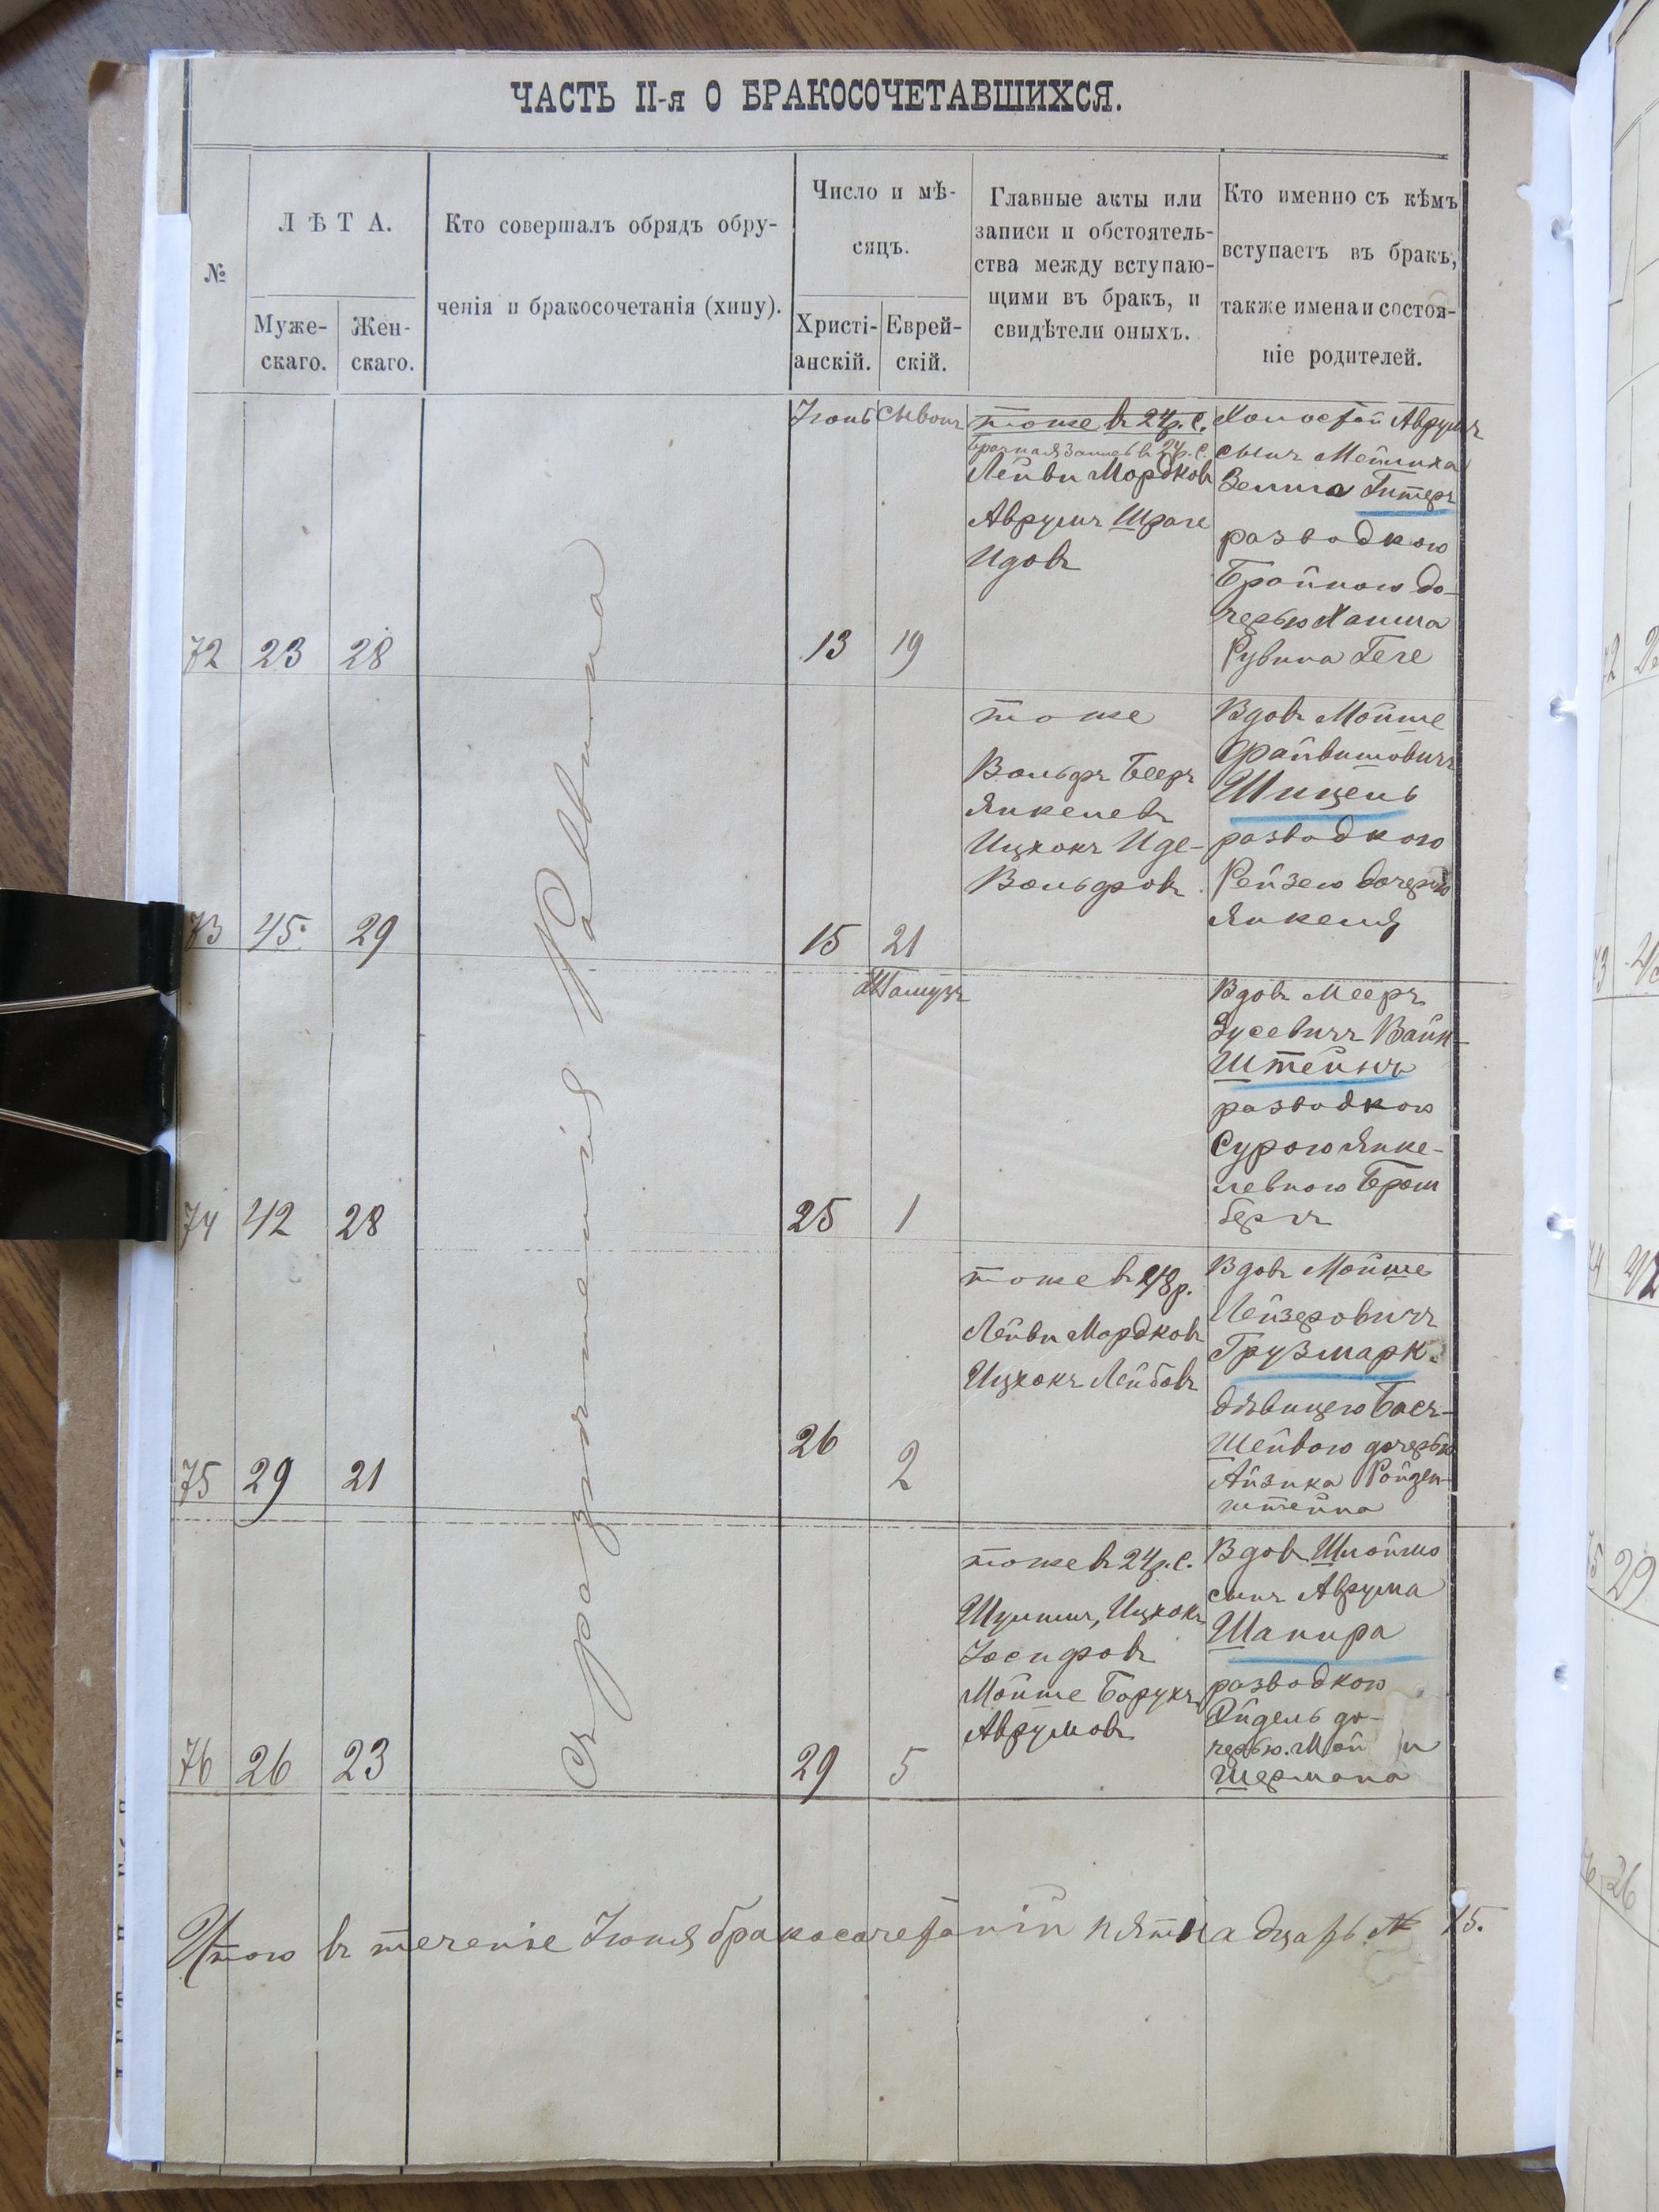 ЧАСТЬ II-я О БРАКОСОЧЕТАВШИХСЯ.
№
ЛѢТА.
Муже-
скаго.
Жен-
скаго.
Кто совершалъ обрядъ обру-
ченія и бракосочетанія (хипу).
Число и мѣ-
сяцъ.
Христі-
анскій.
Еврей-
скій.
Главные акты или
записи и обстоятель-
ства между вступаю-
щими въ бракъ, и
свидѣтели оныхъ.
Кто именно съ кѣмъ
вступаетъ въ бракъ,
также имена и состоя-
ніе родителей.
Съ разрѣшенія Раввина
72
23
28
Іюнь
13
Сывонъ
19
тоже въ 24 р. С.
Брачная запись въ 24 р. С.
Лейви Мордковъ
Аврумъ Шраге
Идовъ
Холостой Аврумъ
сынъ Мейлиха
Зелига Гитеръ
разводкою
Брайною до-
черью Хаима
Рувина Геге
73
45
29
15
21
тоже
Вольфъ Беръ
Янкелевъ
Ицхокъ Иде-
Вольфовъ
Вдовъ Мойше
Файвишовичъ
Шицель
разводкою
Рейзею дочерью
Янкеля
74
42
28
25
Тамузъ
1
Вдовъ Мееръ
Зусевичъ Вайн-
штейнъ
разводкою
Сурою Янке-
левною Бром
бергъ
75
29
21
26
2
тоже въ 48 р.
Лейви Мордковъ
Ицхокъ Лейбовъ
Вдовъ Мойше
Лейзеровичъ
Грузмарк
дѣвицею Бася-
Шейвою дочерью
Айзика Ройзен-
штейна
76
26
23
29
5
тоже въ 24 р. С.
Шулимъ, Ицхокъ
Іосифовъ
Мойше Борухъ
Аврумовъ
Вдовъ Шлоймо
сынъ Аврума
Шапира
разводкою
Эйдель до-
черью Мой
Шермана
Итого въ теченіе Іюня бракосочетаній пятнадцать № 15.